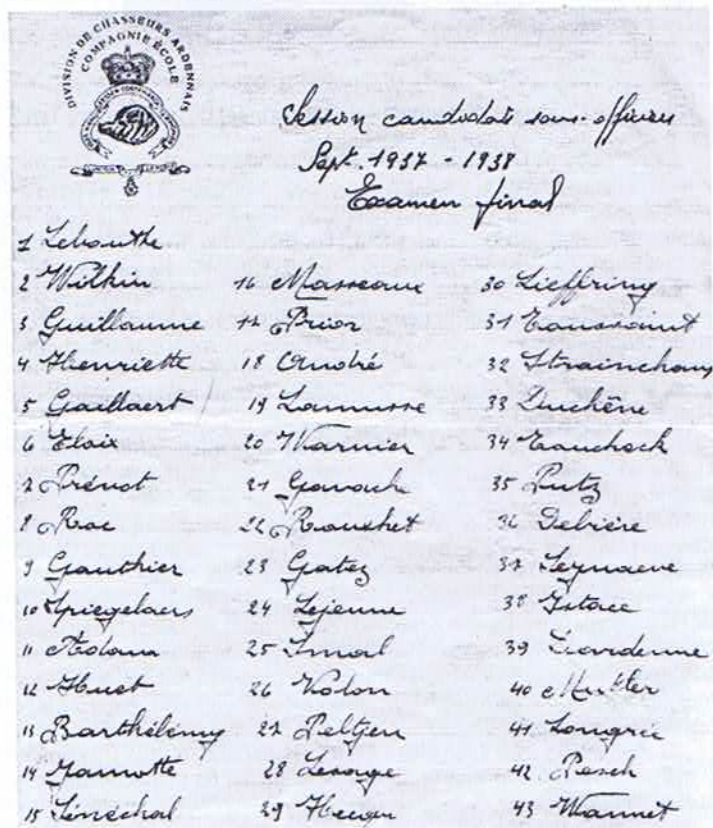 DIVISION DE CHASSEURS ARDENNAIS
COMPAGNIE ÉCOLE
Session candidats sous-officiers
Sept. 1937 - 1938
Examen final
1 Lehouthe
2 Wilkin
3 Guillaume
4 Henriette
5 Gaillaert
6 Eloix
7 Prénot
8 Roc
9 Gauthier
10 Spiegelaers
11 Adam
12 Huet
13 Barthélémy
14 Jamotte
15 Sénéchal
16 Massaux
17 Prior
18 André
19 Lamusse
20 Warnier
21
22 Rouchet
23 Gatez
24 Lejeune
25 Smal
26 Kolon
27 Peltjen
28 Lesage
29
30 Lieffring
31 Toussaint
32 Strainchamps
33 Duchêne
34
35 Putz
36 Debière
37 Seynaeve
38 Istace
39
40
41 Longrée
42 Pesch
43 Wannet